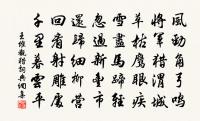 風勁角弓鳴
將軍獵渭城
草枯鷹眼疾
雪盡馬蹄輕
忽過新豐市
還歸細柳營
回看射雕處
千里暮雲平
王維觀獵